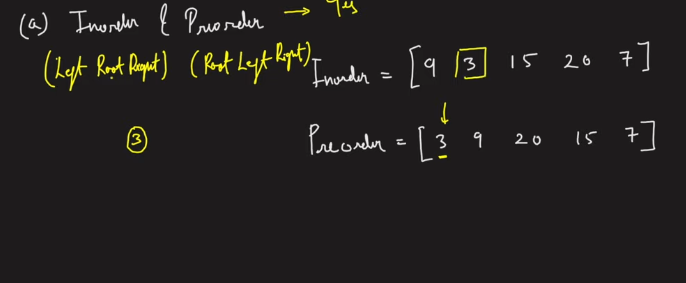 (a) Inorder & Preorder → Yes
(Left Root Right) (Root Left Right)
Inorder = [ 9 3 15 20 7 ]
③ Preorder = [ 3 9 20 15 7 ]